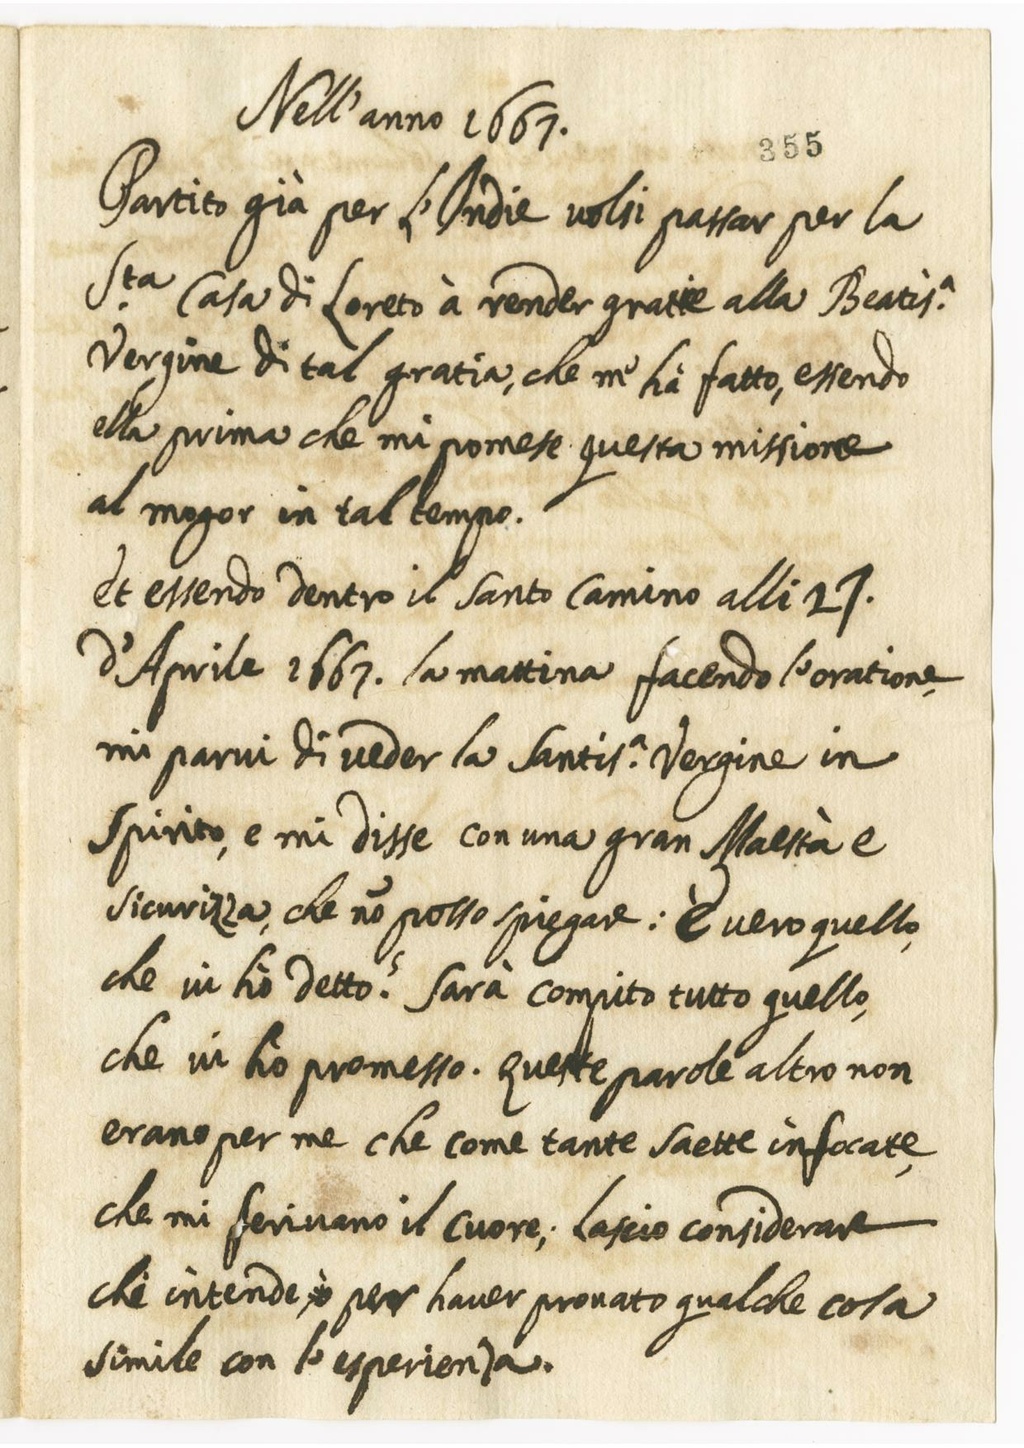 Nell'anno 1667.
355
Partito già per l'Indie volsi passar per la
S.ta Casa di Loreto à render gratie alla Beatis.a
Vergine di tal gratia, che m'hà fatto, essendo
ella prima che mi pomese questa missione
al mogor in tal tempo.
Et essendo dentro il santo Camino alli 27.
d'Aprile 1667. la mattina facendo l'oratione,
mi parui di ueder la Santis.a Vergine in
spirito, e mi disse con una gran Maestà e
sicurizza, che nõ posso spiegare: È uero quello,
che ui hò detto? Sarà compito tutto quello,
che ui hò promesso. Queste parole altro non
erano per me che come tante saette infocate,
che mi feriuano il cuore; lascio considerare
chi intende, ò per hauer prouato qualche cosa
simile con l'esperienza.